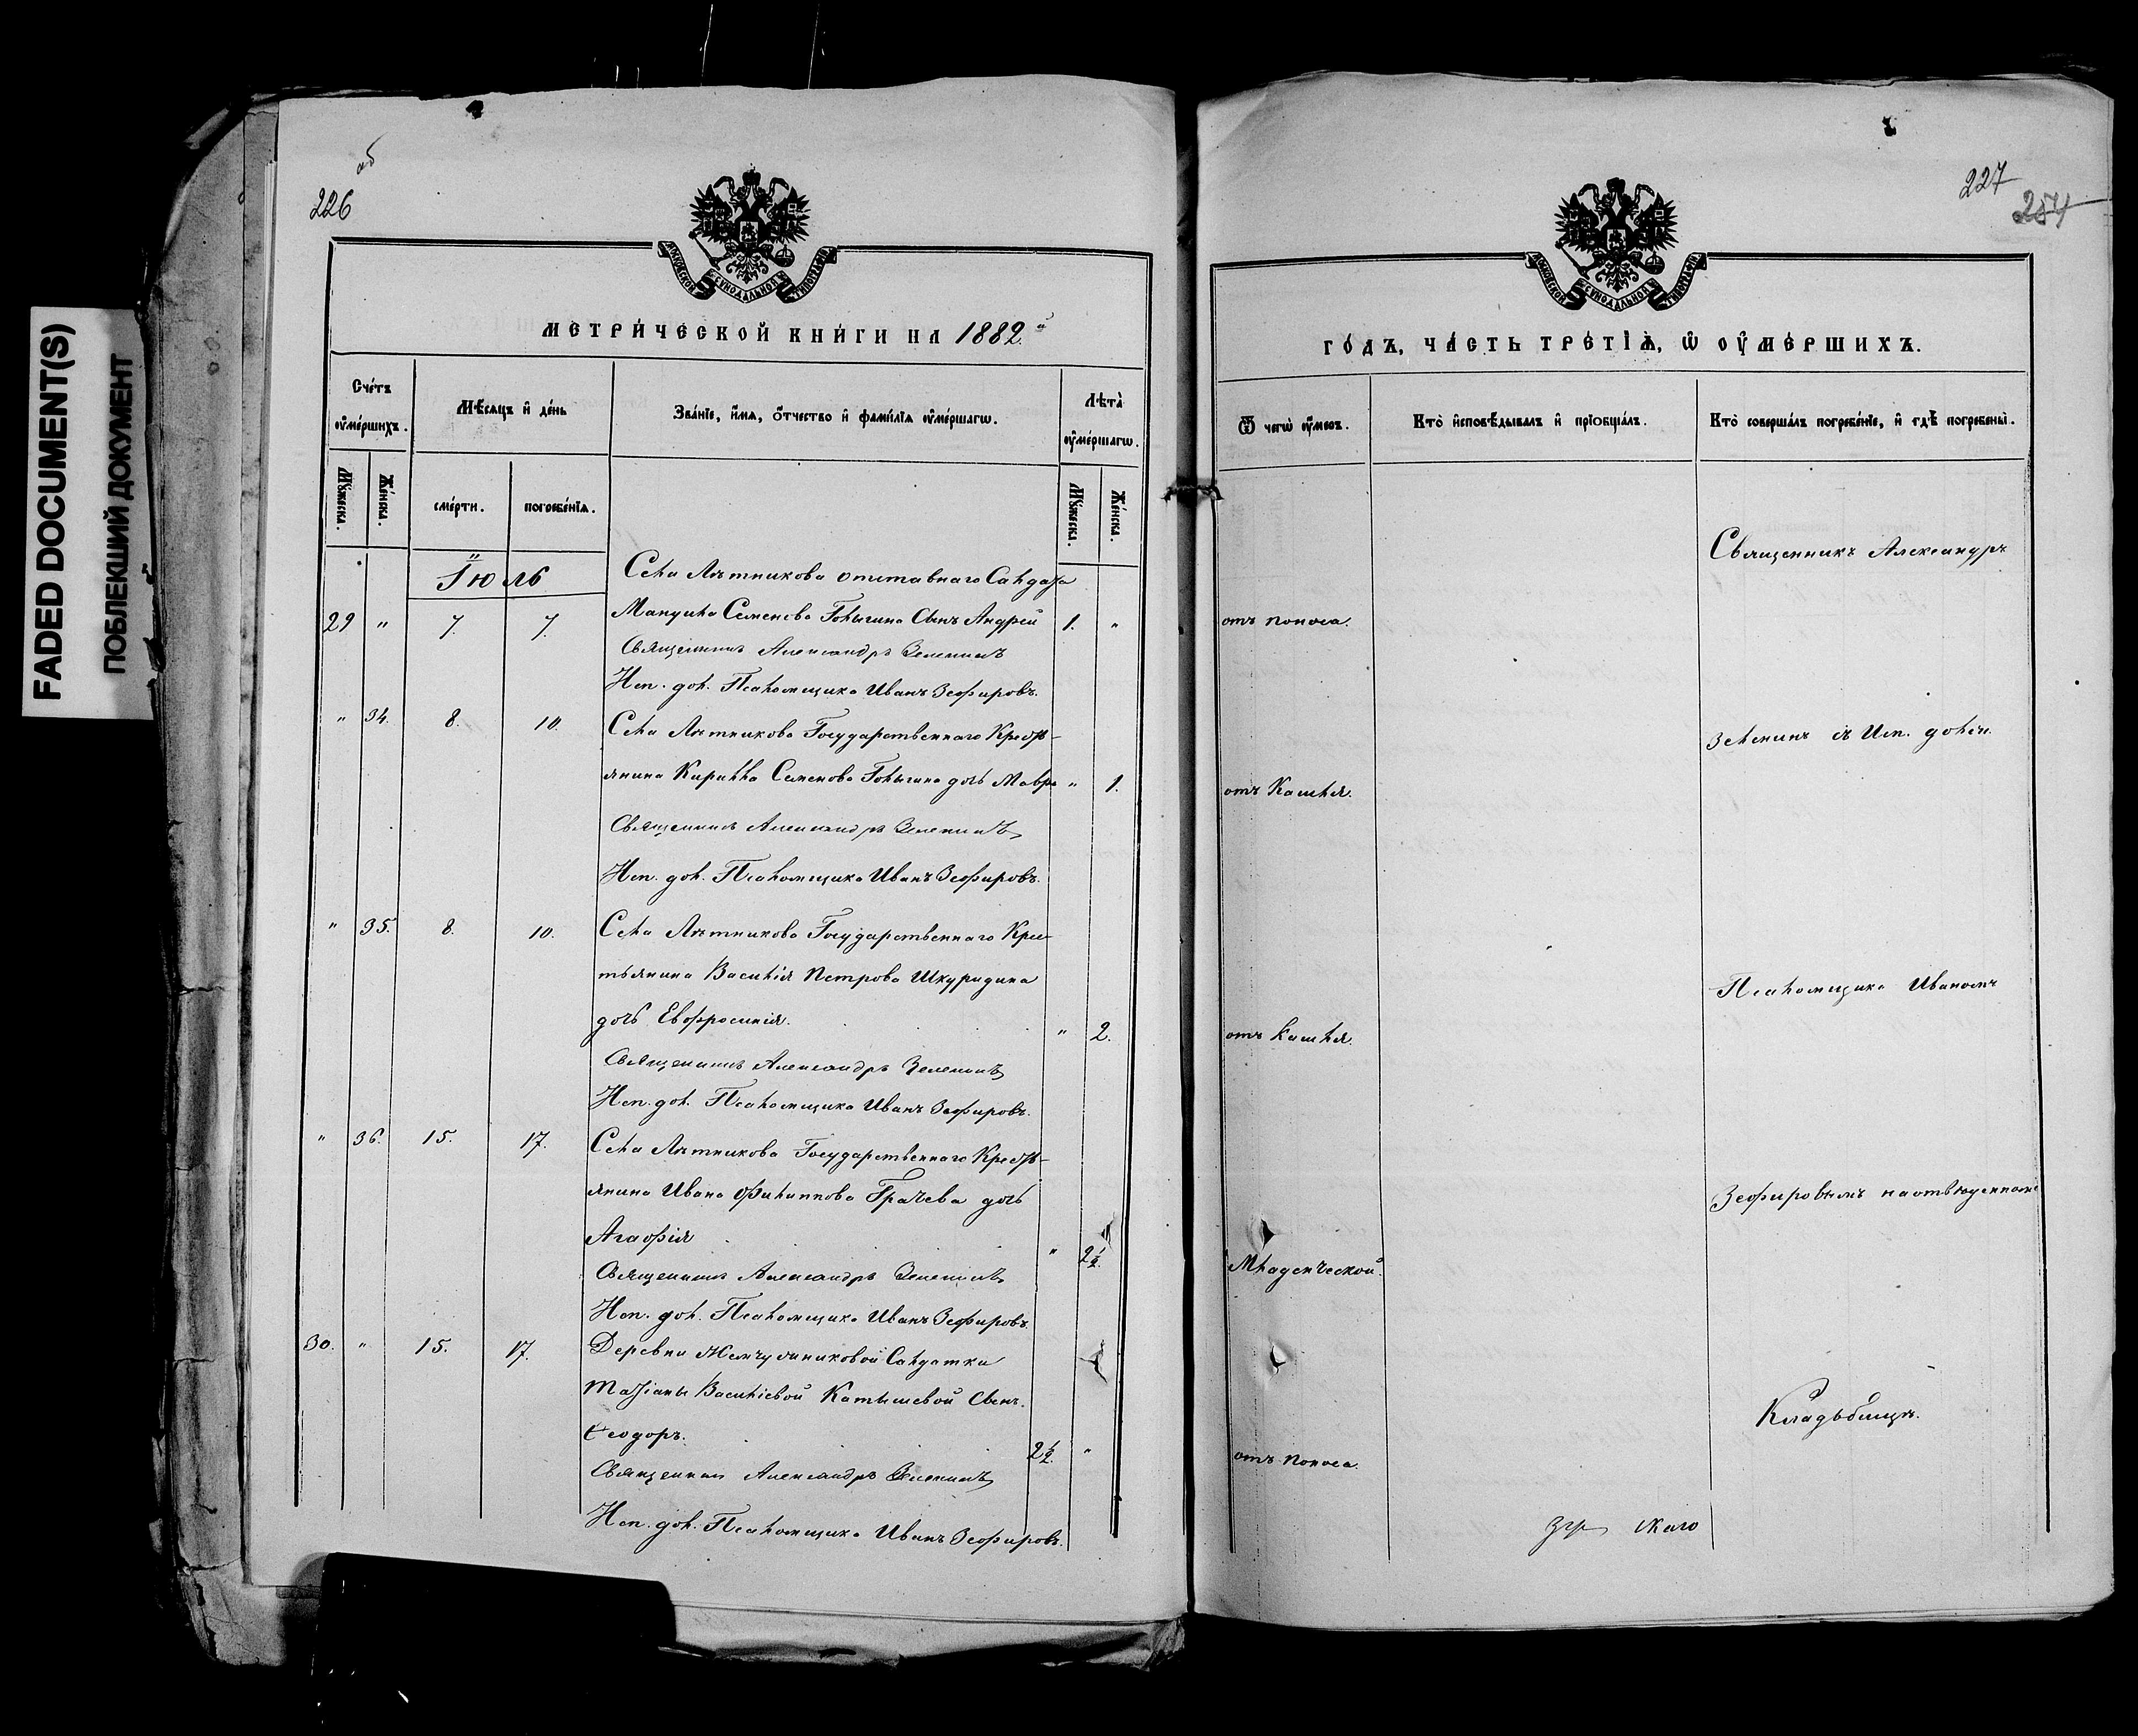 FADED DOCUMENT(S)
ПОБЛЕКШИЙ ДОКУМЕНТ
об
226
МОСКОВСКОЙ СѴНОДАЛЬНОЙ ТИПОГРАФІИ
МЕТРИЧЕСКОЙ КНИГИ НА 1882 й
Счетъ оумершихъ.
Мѣсяцъ и день
Званіе, имя, отчество и фамилія оумершагѡ.
Лѣта оумершагѡ.
Мꙋжеска.
Женска.
смерти.
погребенія.
Мꙋжеска.
Женска.
Іюль
Села Лѣтникова отставнаго Солдата
29 " 7. 7. Мануила Семенова Голыгина Сынъ Андрей 1. "
Священникъ Александръ Зеленинъ
Исп. дол. Псаломщика Иванъ Зефировъ.
" 34. 8. 10. Села Лѣтникова Государственнаго Кресть-
янина Кирилла Семенова Голыгина дочь Мавра " 1.
Священникъ Александръ Зеленинъ
Исп. дол. Псаломщика Иванъ Зефировъ.
" 35. 8. 10. Села Лѣтникова Государственнаго Крес-
тьянина Василія Петрова Шкуридина
дочь Евфросинія. " 2.
Священникъ Александръ Зеленинъ
Исп. дол. Псаломщика Иванъ Зефировъ.
" 36. 15. 17. Села Лѣтникова Государственнаго Кресть-
янина Ивана Филиппова Грачева дочь
Агафія " 2½.
Священникъ Александръ Зеленинъ
Исп. дол. Псаломщика Иванъ Зефировъ.
30. " 15. 17. Деревни Солдатки
Татіаны Василіевой Катышевой Сынъ
Ѳеодоръ. 2½. "
Священникъ Александръ Зеленинъ
Исп. дол. Псаломщика Иванъ Зефировъ.
227
254
МОСКОВСКОЙ СѴНОДАЛЬНОЙ ТИПОГРАФІИ
ГОДЪ, ЧАСТЬ ТРЕТІЯ, Ѡ ОУМЕРШИХЪ.
Ѿ чегѡ оумеръ.
Кто исповѣдывалъ и пріобщалъ.
Кто совершалъ погребеніе, и гдѣ погребены.
Священникъ Александръ
отъ поноса.
Зеленинъ съ Исп. долж.
отъ Кашля.
Псаломщика Иваномъ
отъ Кашля.
Зефировымъ на отведенномъ
Младенческой.
Кладбищѣ.
отъ поноса.